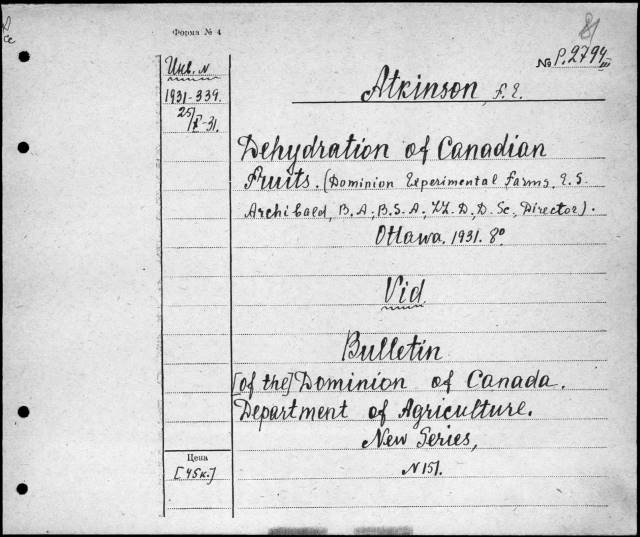 Форма № 4
№ P.2794 III
Инв. N
1931-339.
25/I-31.
Atkinson, F. E.
Dehydration of Canadian
Fruits. (Dominion Experimental Farms, E. S.
Archibald, B. A., B. S. A., LL. D., D. Sc., Director).
Ottawa. 1931. 8º
Vid
Bulletin
[of the] Dominion of Canada.
Department of Agriculture.
New Series,
N 151.
Цена
[45к.]